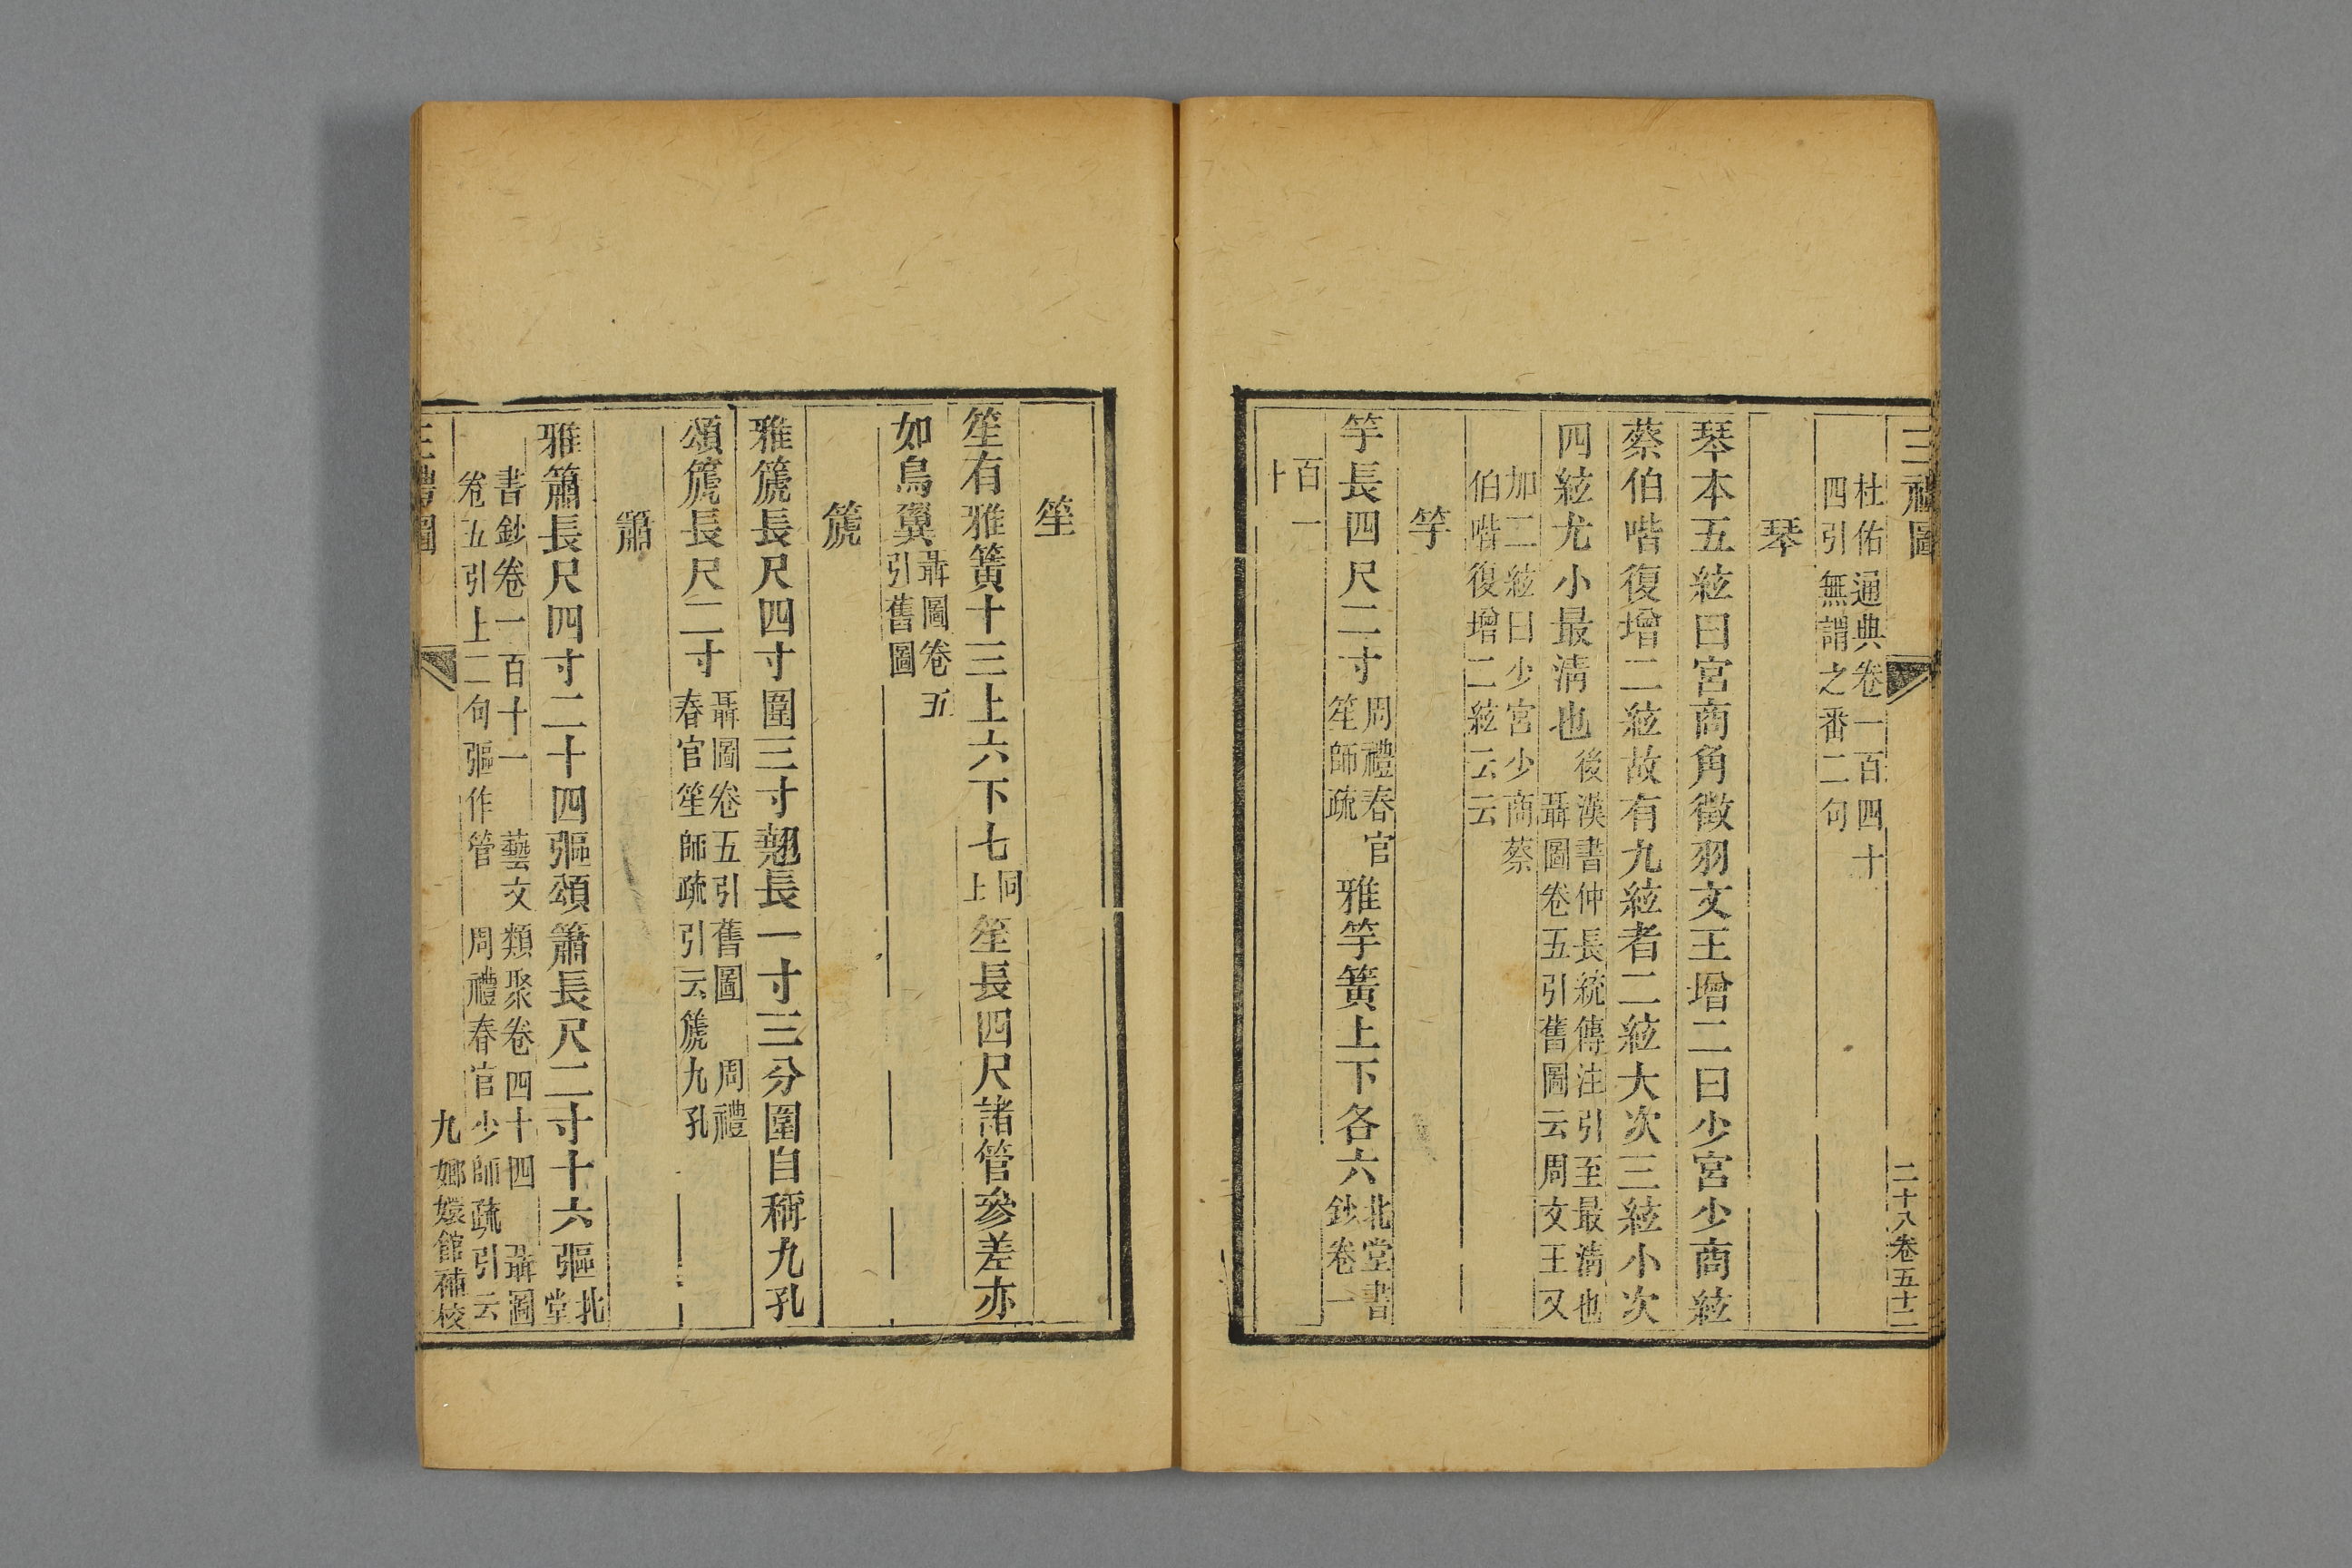 三禮圖　二十八卷五十二
杜佑通典卷一百四十
四引無謂之番二句
琴
琴本五絃曰宮商角徵羽文王增二曰少宮少商絃
蔡伯喈復增二絃故有九絃者二絃大次三絃小次
四絃尤小最淸也後漢書仲長統傳注引至最淸也
聶圖卷五引舊圖云周文王又
加二絃曰少宮少商蔡
伯喈復增二絃云云
竽
竽長四尺二寸周禮春官
笙師疏
雅竽簧上下各六北堂書
鈔卷一
百一
十
笙
笙有雅簧十三上六下七同
上
笙長四尺諸管參差亦
如鳥翼聶圖卷五
引舊圖
篪
雅篪長尺四寸圍三寸翹長一寸三分圍自稱九孔
頌篪長尺二寸聶圖卷五引舊圖　周禮
春官笙師疏引云篪九孔
簫
雅簫長尺四寸二十四彄頌簫長尺二寸十六彄北
堂
書鈔卷一百十一　藝文類聚卷四十四　聶圖
卷五引上二句彄作管　周禮春官少師疏引云
三禮圖　九　嫏嬛館補校